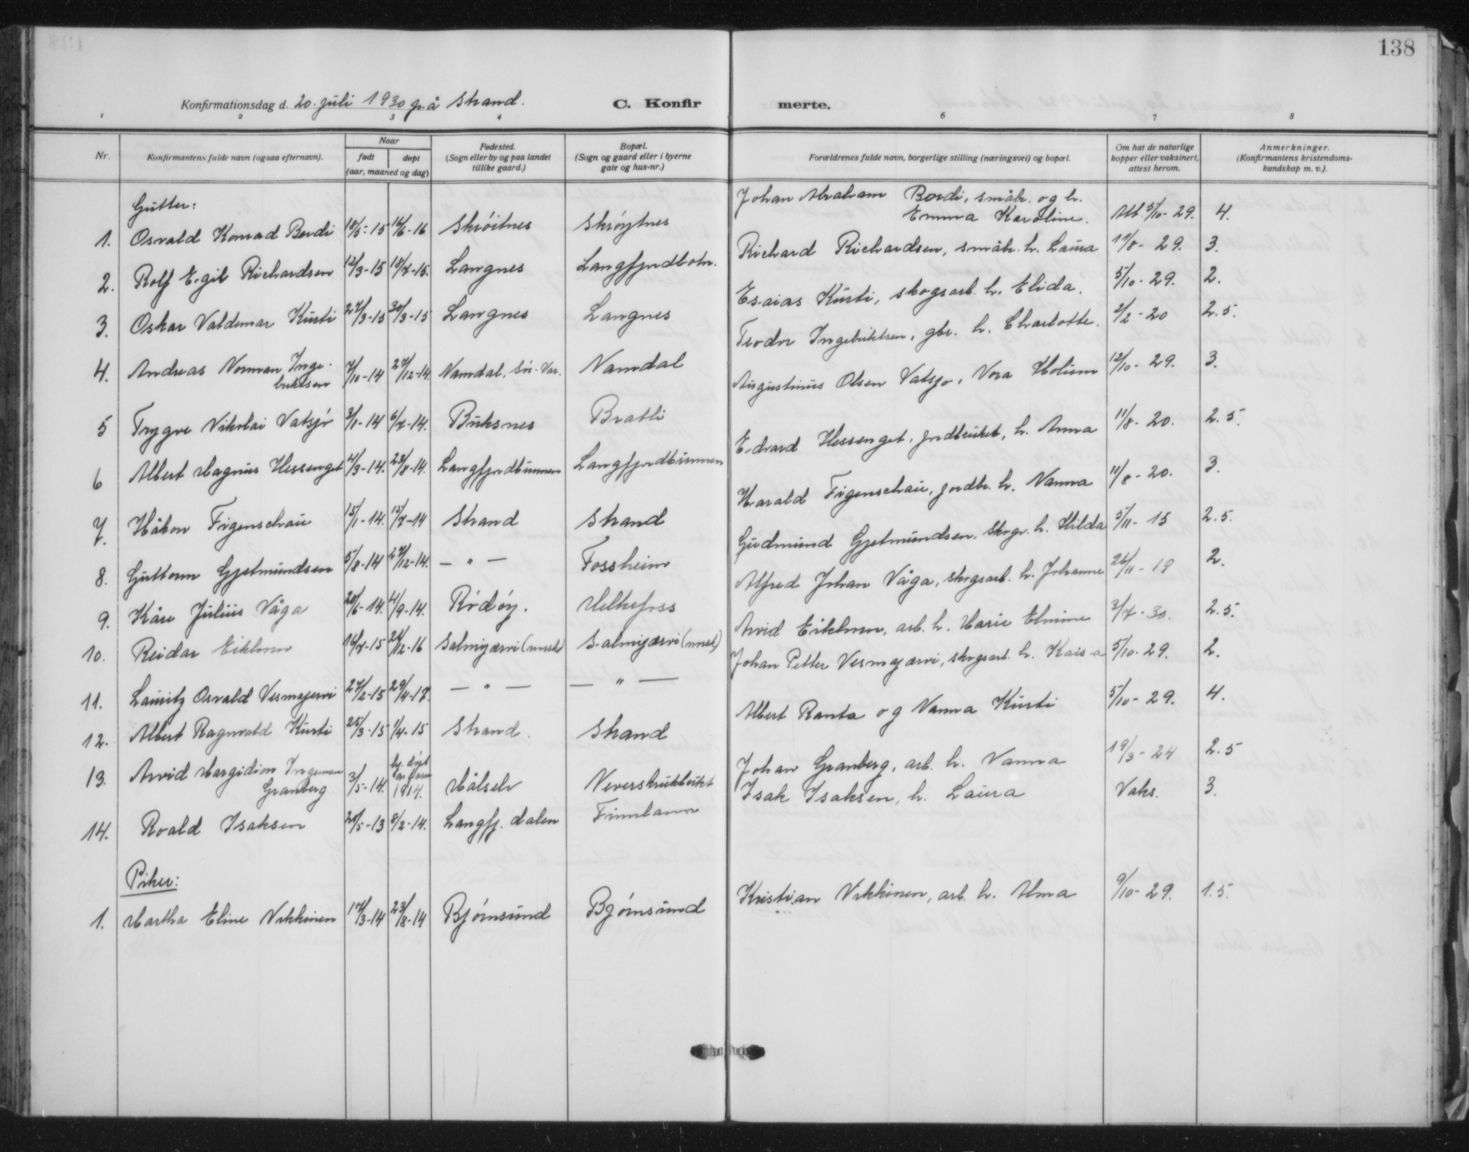 138
Konfirmationsdag d. 20. juli 1930 på Strand.
C. Konfirmerte.
1 2 3 4 6 7 8
Nr.
Konfirmantens fulde navn (ogsaa efternavn).
Naar
født
døpt
(aar, maaned og dag)
Fødested.
(Sogn eller by og paa landet
tillike gaard.)
Bopæl.
(Sogn og gaard eller i byerne
gate og hus-nr.)
Forældrenes fulde navn, borgerlige stilling (næringsvei) og bopæl.
Om hat de naturlige
kopper eller vaksinert,
attest herom.
Anmerkninger.
(Konfirmantens kristendoms-
kundskap m. v.).
Gutter:
1. Osvald Konrad Bordi Skrøitnes Skrøytnes Johan Abraham Bordi, småbr. og h.
Emma Karoline. Att 5/10-29. 4.
2. Rolf Egil Richardsen 12/3-15 Langnes Langfjordbotn. Richard Richardsen, småbr. h. Laura 11/8-29. 3.
3. Oskar Valdemar Kurti 27/3-15 30/3-15 Langnes Langnes Esaias Kurti, skogsarb. h. Elida. 5/10-29. 2.
4. Andreas Norman Inge-
briktsen 7/10-14 27/12-14. Namdal, Sør-Var. Namdal Teodor Ingebriktsen, gbr. h. Charlotte. 2/2-20 2.5.
5 Trygve Nikolai Vatsjø 3/1-14 6/7-14. Buksnes Bratli Augustinus Olsen Vatsjø, Nora Holum 12/10-29. 3.
6 Albert Magnus Hessenget 4/3-14. 23/8-14. Langfjordbunnen Langfjordbunnen Edvard Hessenget, jordbruker, h. Anna 11/8-20. 2.5.
7. Håkon Figenschau 15/1-14. 12/7-14 Strand Strand Harald Figenschau, jordbr. h. Nanna 11/8-20. 3.
8. Guttorm Gjetmundsen 5/8-14 27/12-14. — " — Fossheim Gudmund Gjetmundsen, Skogv. h. Hilda 5/11-15 2.5.
9. Kåre Julius Våga 20/5-14. 4/9-14. Rødøy. Melkefoss Alfred Johan Våga, skogsarb. h. Johanne 26/11-19 2.
10. Reidar Eiklmo 14/7-15 26/12-16 Salmijærvi (norsk) Salmijærvi (norsk) Arvid arb. h. Marie Elmine 3/7-30. 2.5.
11. Lauritz Osvald Vesmajervi 27/2-15 29/4-17. — " — — " — Johan Petter Vesmajærvi, skogsarb. h. Kaisa 5/10-29. 2.
12. Albert Ragnvald Kurti 25/3-15 1/4-15 Strand. Strand Albert Ranta og Nanna Kurti 5/10-29. 4.
13. Arvid Margidion Ingemar
Granberg 3/5-14. 1914. Målselv Neverskrukbukt Johan Granberg, arb. h. Nanna 19/3-24 2.5
14. Roald Isaksen 20/5-13 8/2-14. Langfj. dalen Finnland Isak Isaksen, h. Laura Vaks. 3.
Piker:
1. Martha Eline Nikkinen 17/3-14 23/8-14 Bjørnsund Bjørnsund Kristian Nikkinen, arb. h. Alma 9/10-29. 1.5.